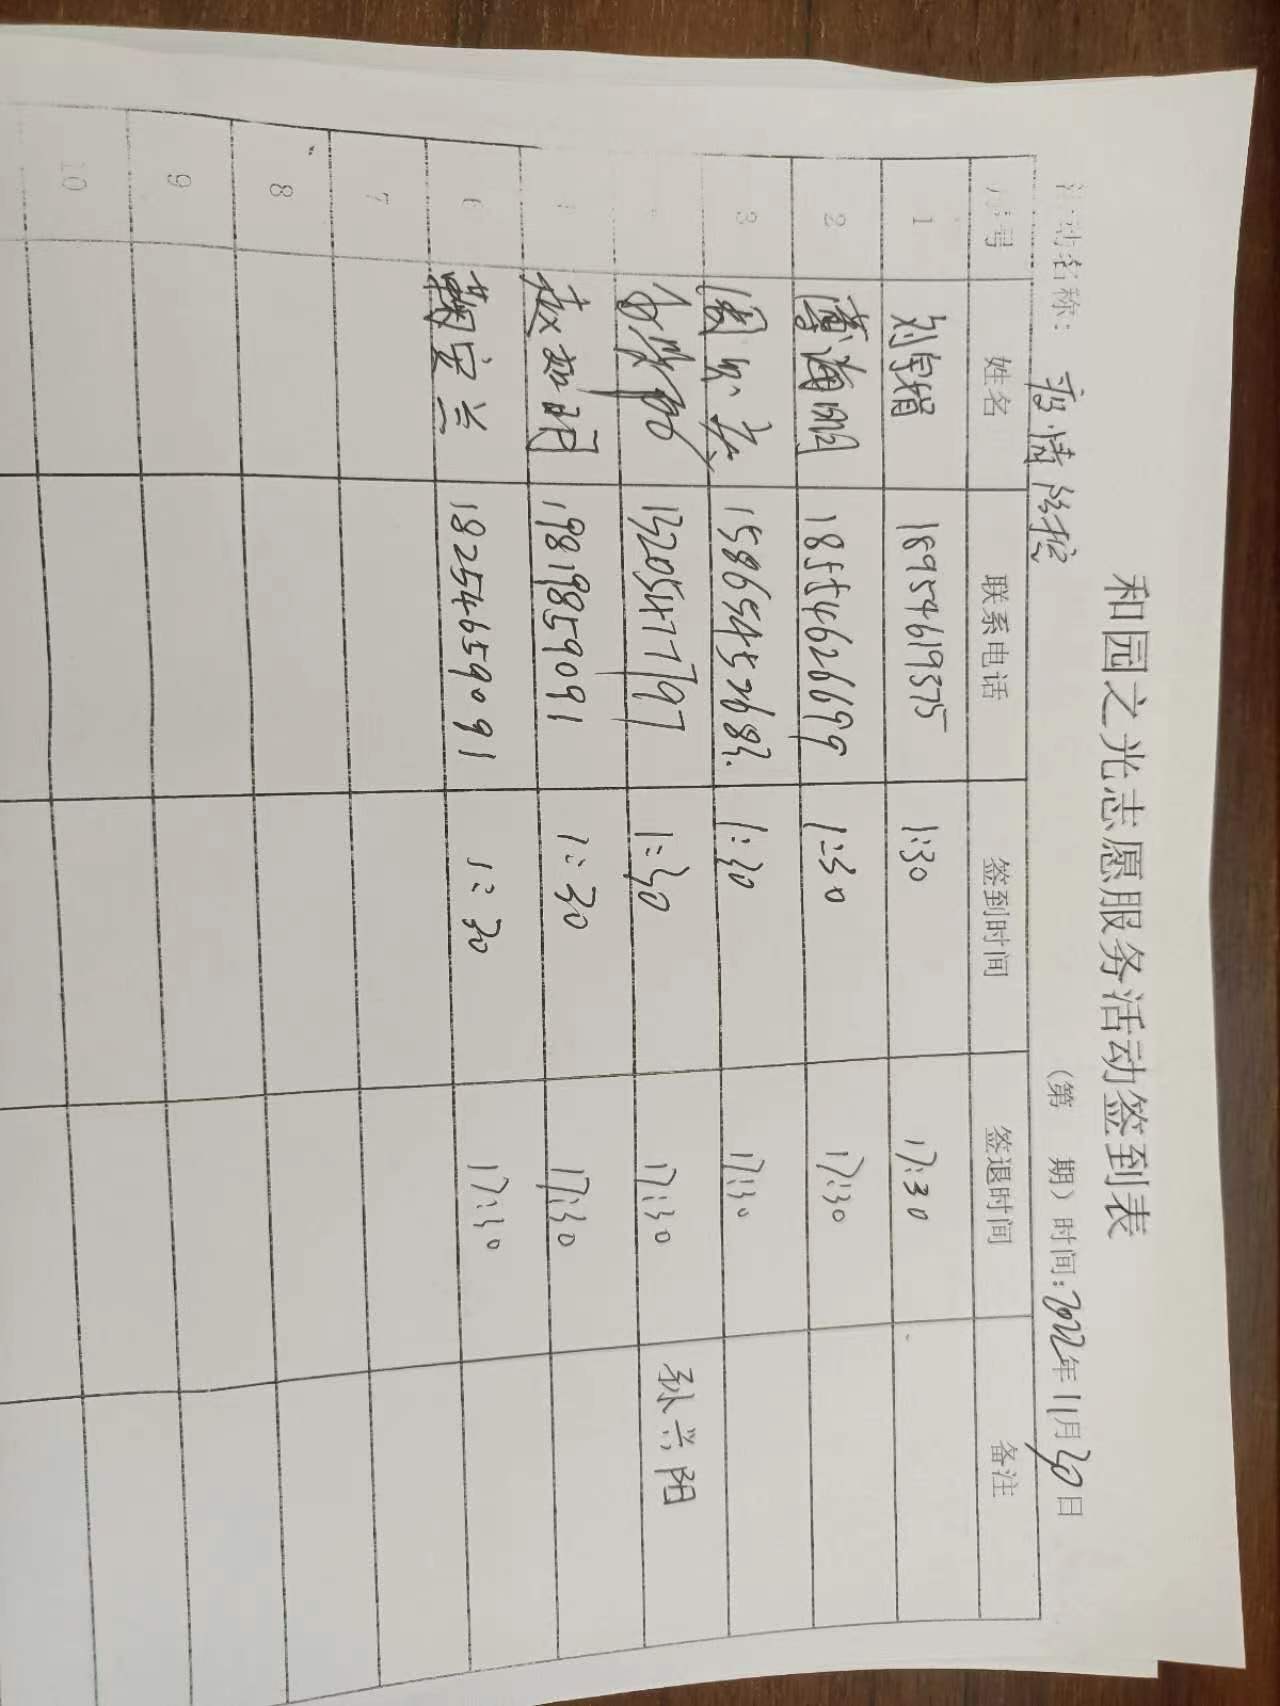 和园之光志愿服务活动签到表
活动名称: 疫情防控 (第 期) 时间: 2022年11月30日
序号 姓名 联系电话 签到时间 签退时间 备注
1 刘宝娟 18954619375 1:30 17:30
2 薄海明 18554626699 1:30 17:30
3 1:30 17:30
13205477797 1:30 17:30 孙兴阳
19819859091 1:30 17:30
6 鞠宝兰 18254659091 1:30 17:30
7
8
9
10